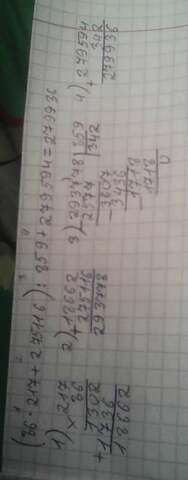 (86 · 217 + 275116) : 859 + 279594 = 279936
1) × 217
86
1302
+ 1736
18662
2) + 18662
275116
293778
3) 293778 | 859
2577 342
- 3607
3436
- 1718
1718
0
4) + 279594
342
279936